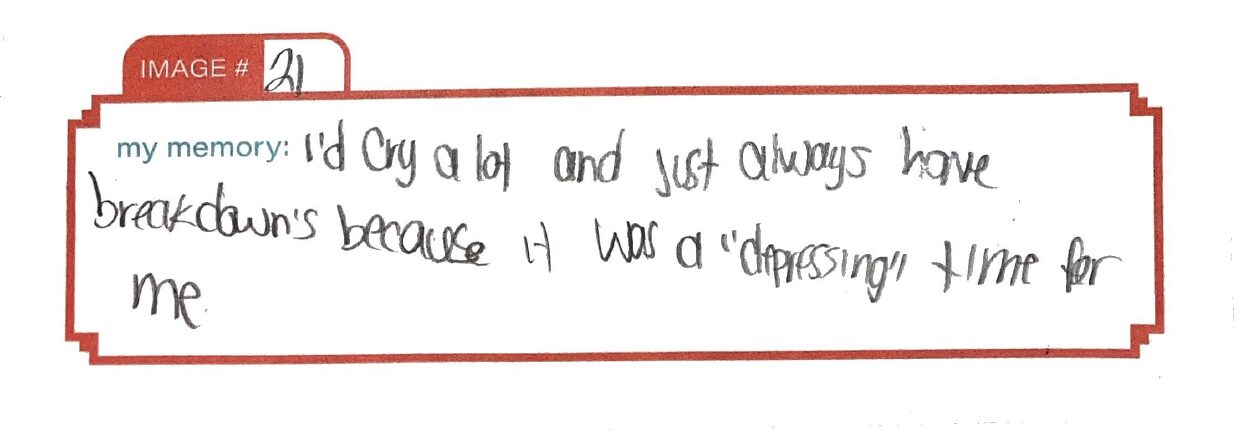 IMAGE # 21
my memory: I'd Cry a lot and just always have
breakdown's because it was a "depressing" time for
me.